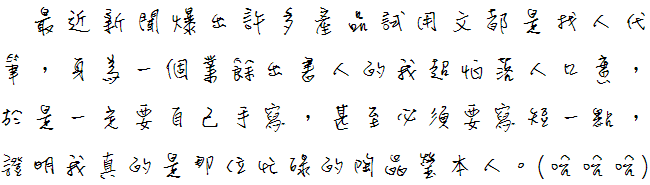 最近新聞爆出許多產品試用文都是找人代
筆,身為一個業餘出書人的我超怕落人口實,
於是一定要自己手寫,甚至必須要寫短一點,
證明我真的是那位忙碌的陶晶瑩本人。(哈哈哈)